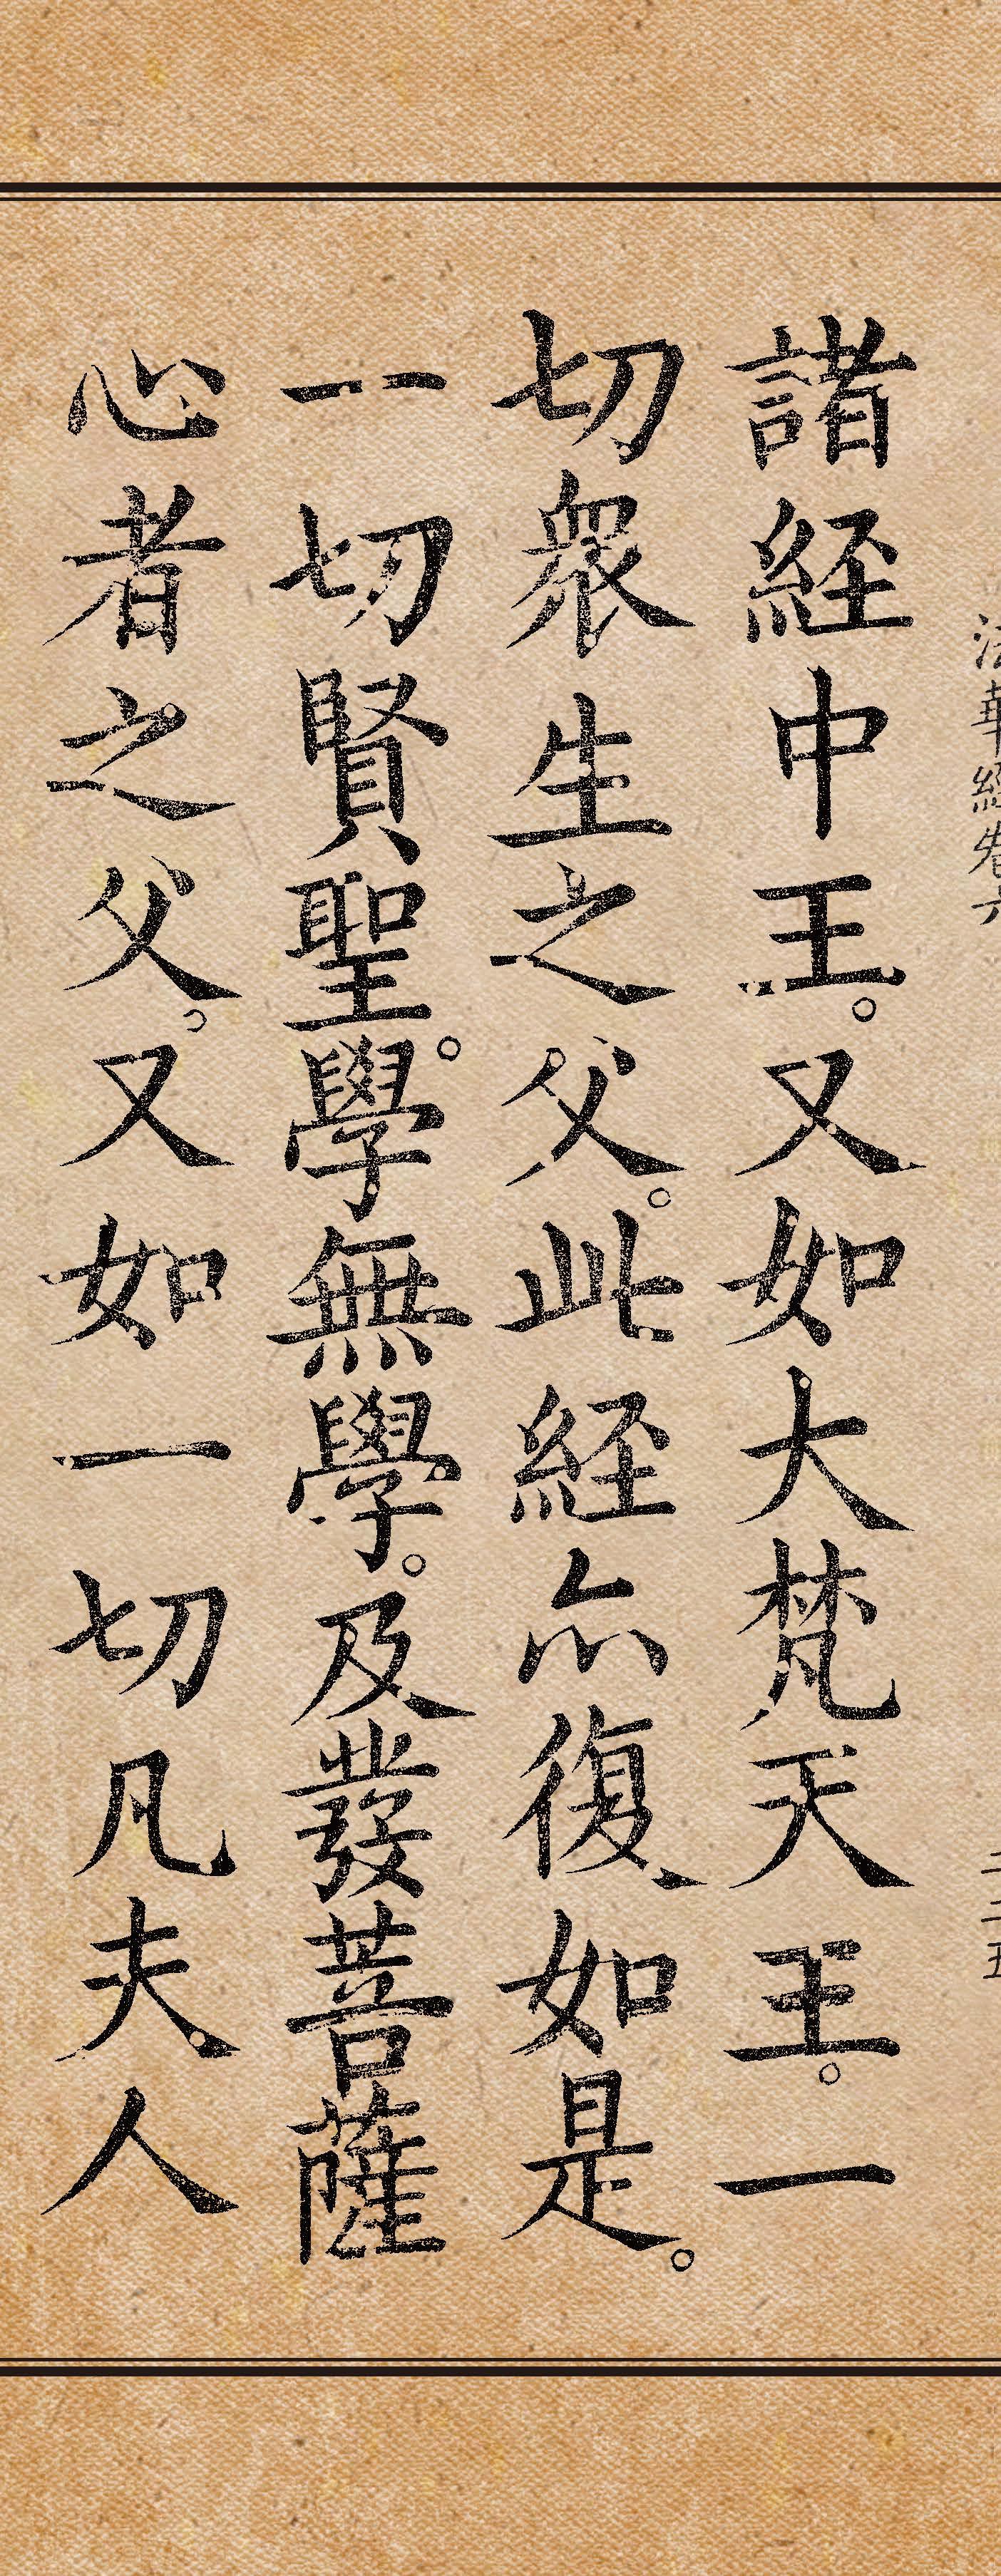 法華經卷六
二二五
諸経中王。又如大梵天王。一
切衆生之父。此経亦復如是。
一切賢聖。學無學。及發菩薩
心者之父。又如一切凡夫人